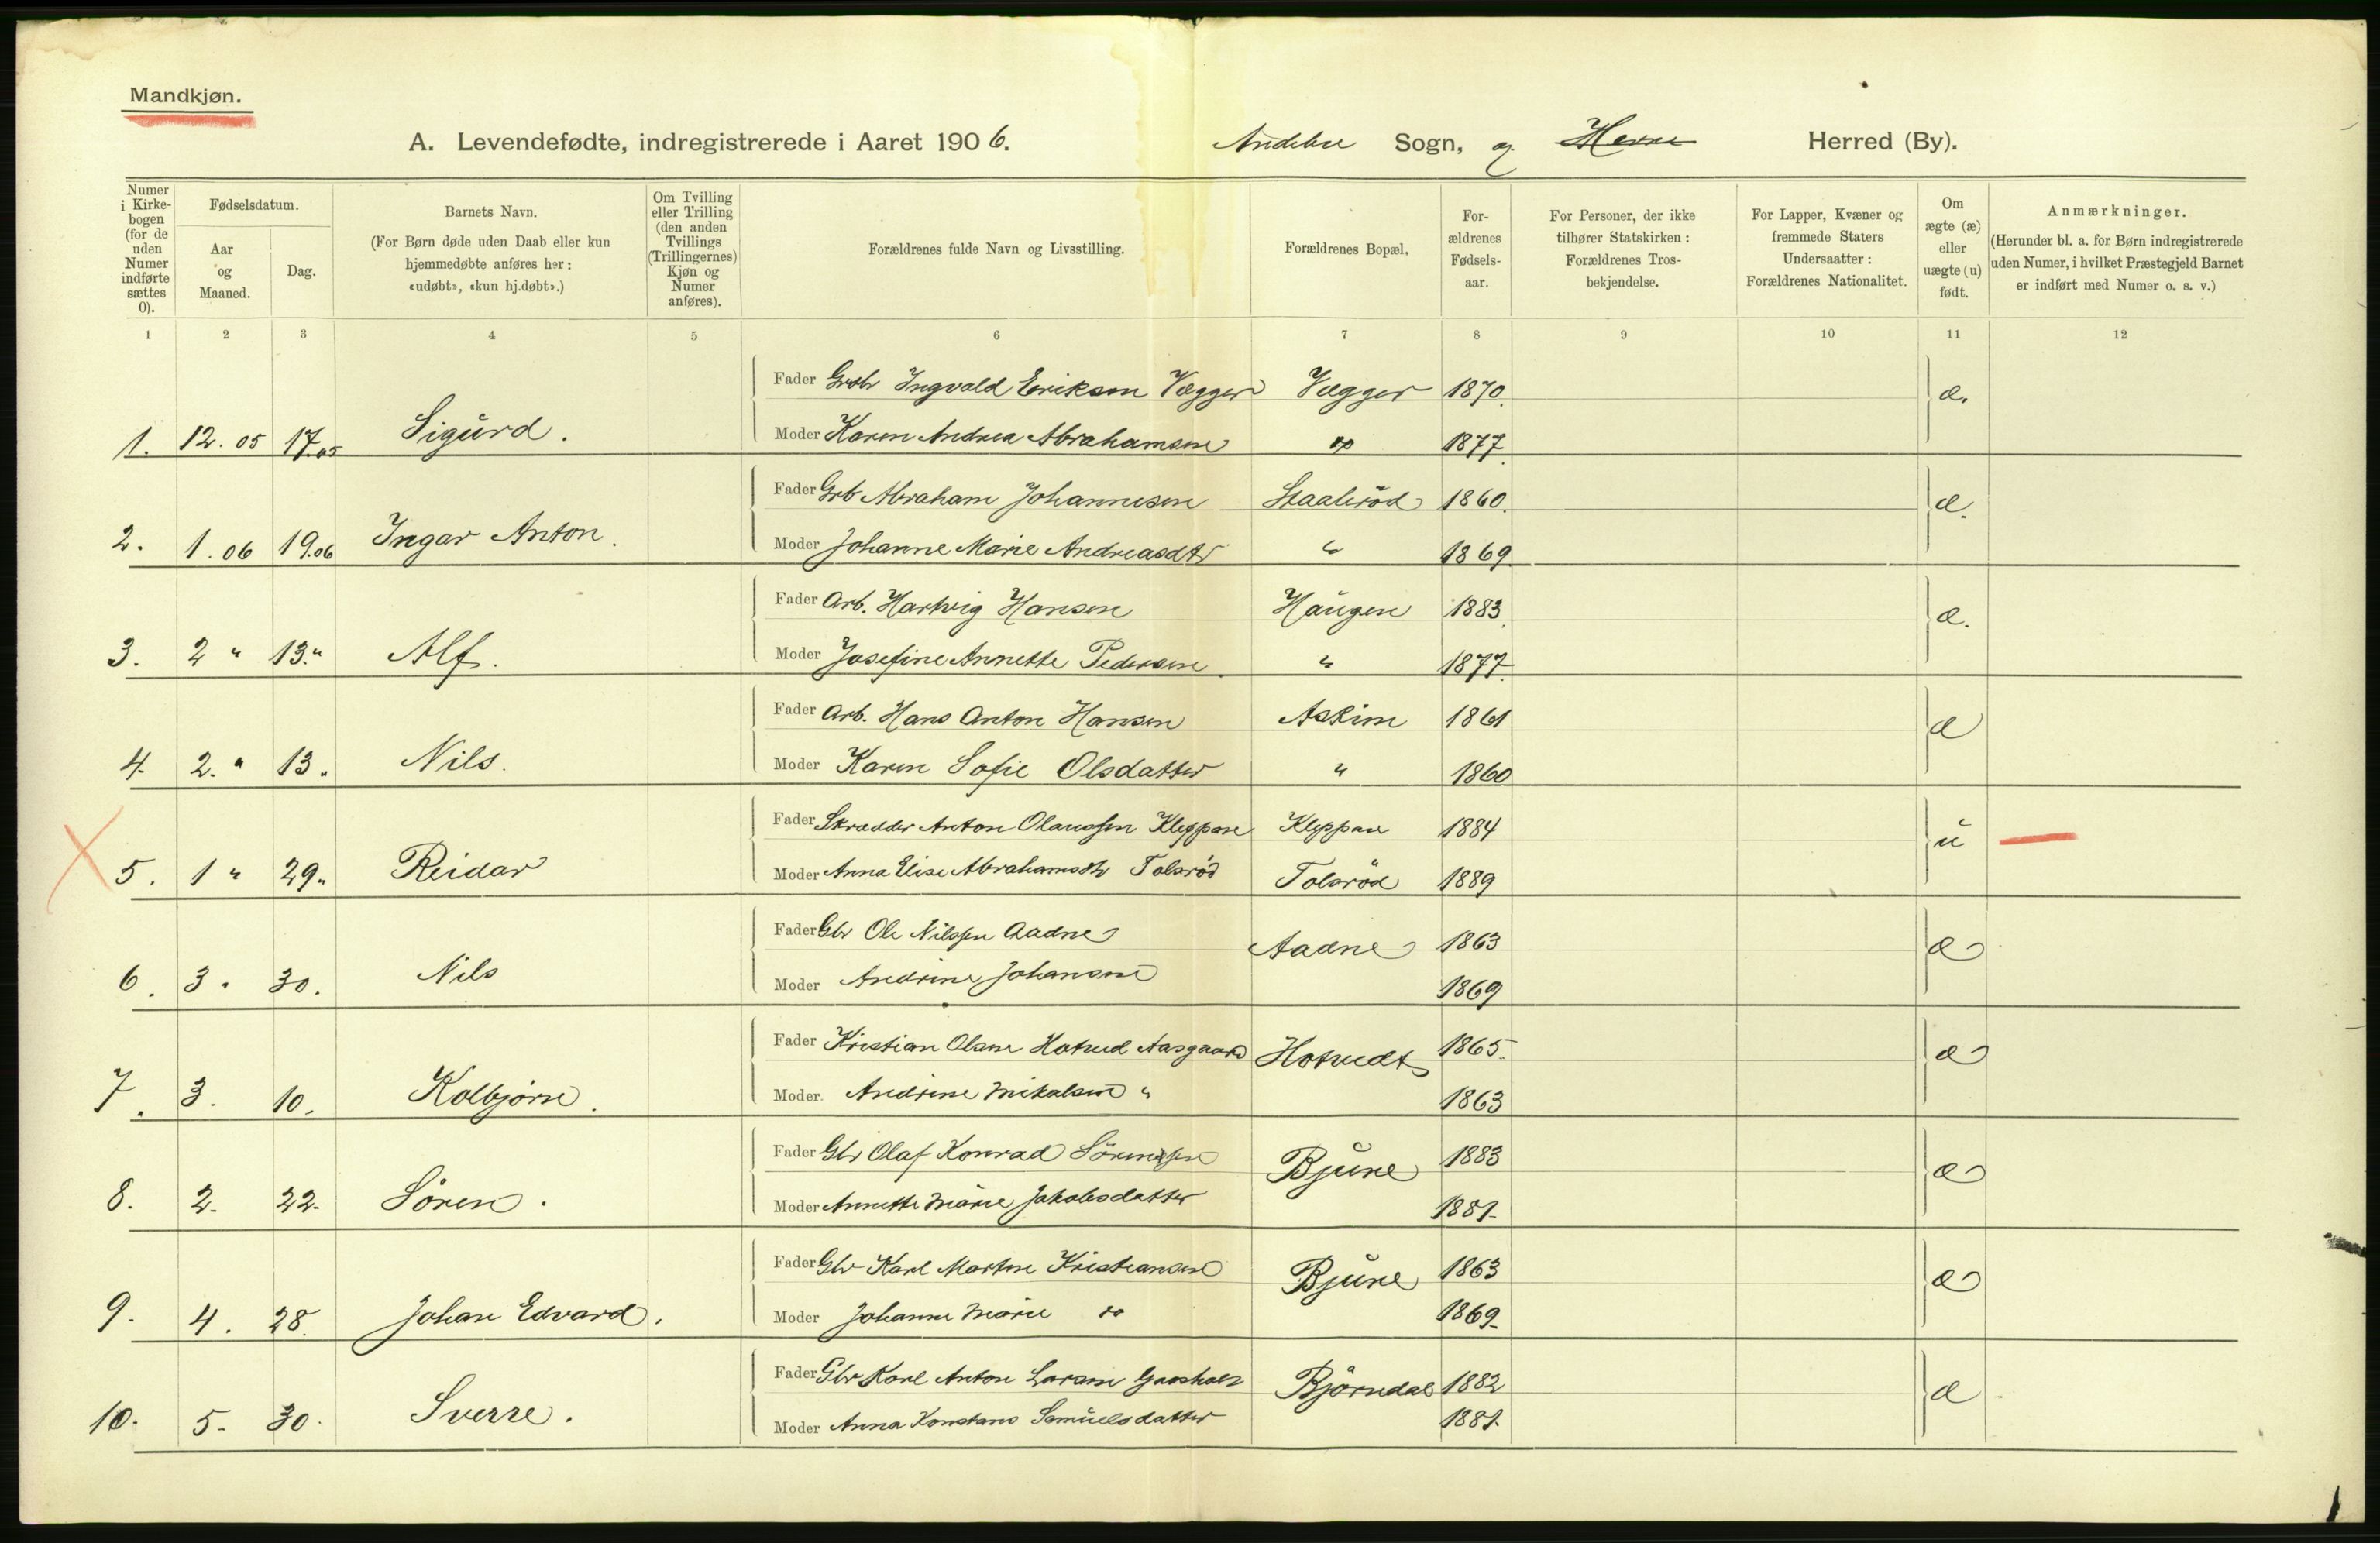 Mandkjøn.
A. Levendefødte, indregistrerede i Aaret 1906. Andebu Sogn, og Herred (By).
Numer i Kirkebogen (for de uden Numer indførte sættes 0).
Fødselsdatum.
Aar og Maaned.
Dag.
Barnets Navn.
(For Børn døde uden Daab eller kun hjemmedøbte anføres her: «udøbt», «kun hj.døbt».)
Om Tvilling eller Trilling (den anden Tvillings (Trillingernes) Kjøn og Numer anføres).
Forældrenes fulde Navn og Livsstilling.
Forældrenes Bopæl,
Forældrenes Fødselsaar.
For Personer, der ikke tilhører Statskirken: Forældrenes Trosbekjendelse.
For Lapper, Kvæner og fremmede Staters Undersaatter: Forældrenes Nationalitet.
Om ægte (æ) eller uægte (u) født.
Anmærkninger.
(Herunder bl. a. for Børn indregistrerede uden Numer, i hvilket Præstegjeld Barnet er indført med Numer o. s. v.)
1 2 3 4 5 6 7 8 9 10 11 12
Fader Ingvald Eriksen Vegger Vegger 1870. æ.
1. 12.05 17.05 Sigurd. Moder Karen Andrea Abrahamsen do 1877.
Fader Grb Abraham Johannesen Staalerød 1860. æ.
2. 1.06 19.06 Ingar Anton. Moder Johanne Marie Andreasdtr " 1869
Fader Arb. Hartvig Hansen Haugen 1883. æ.
3. 2 " 13." Alf. Moder Josefine Annette Pedersen. " 1877.
Fader Arb. Hans Anton Hansen Askim 1861 æ
4. 2. " 13. Nils. Moder Karen Sofie Olsdatter " 1860
Fader Skrædder Anton Olaussen Kleppan Kleppan 1884 u
5. 1 " 29. Reidar Moder Anna Elise Abrahamsdtr Tolsrød Tolsrød 1889
Fader Gbr Ole Nilssen Aadne Aadne 1863 æ
6. 3. 30. Nils Moder Andrine Johansen 1869
Fader Kristian Olsen Hotved Aasgaard Hotvedt 1865. æ
7. 3. 10. Kolbjørn. Moder. Andrine Mikalsen " 1863
Fader Gbr Olaf Konrad Sörensen Bjune 1883 æ
8. 2. 22. Sören. Moder Annette Marie Jakobsdatter 1881.
Fader Gbr Karl Marten Kristiansen Bjune 1863 æ
9. 4. 28. Johan Edvard. Moder Johanne Marie do 1869.
Fader Gbr Karl Anton Larsen Gaasholt Björndal 1882 æ
10. 5. 30. Sverre. Moder Anna Konstans Samuelsdatter 1881.